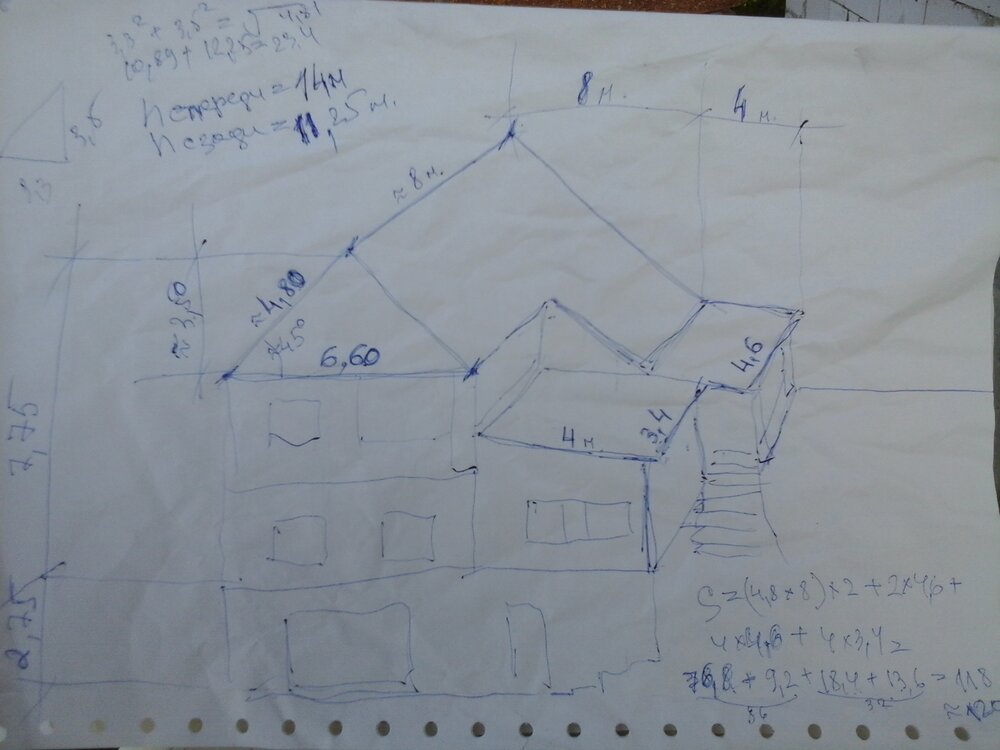 3,3² + 3,5² = √
10,89 + 12,25 = 23,4
h спереди = 14 м
h сзади = 11,25 м.
3,6
3,3
8 м.
4 м.
≈ 8 м.
≈ 4,80
≈ 3,50
≈ 4,50
6,60
4,6
4 м
3,4
7,75
2,75
S = (4,8 × 8) × 2 + 2 × 4,6 +
4 × 4,6 + 4 × 3,4 =
76,8 + 9,2 + 18,4 + 13,6 = 118
32